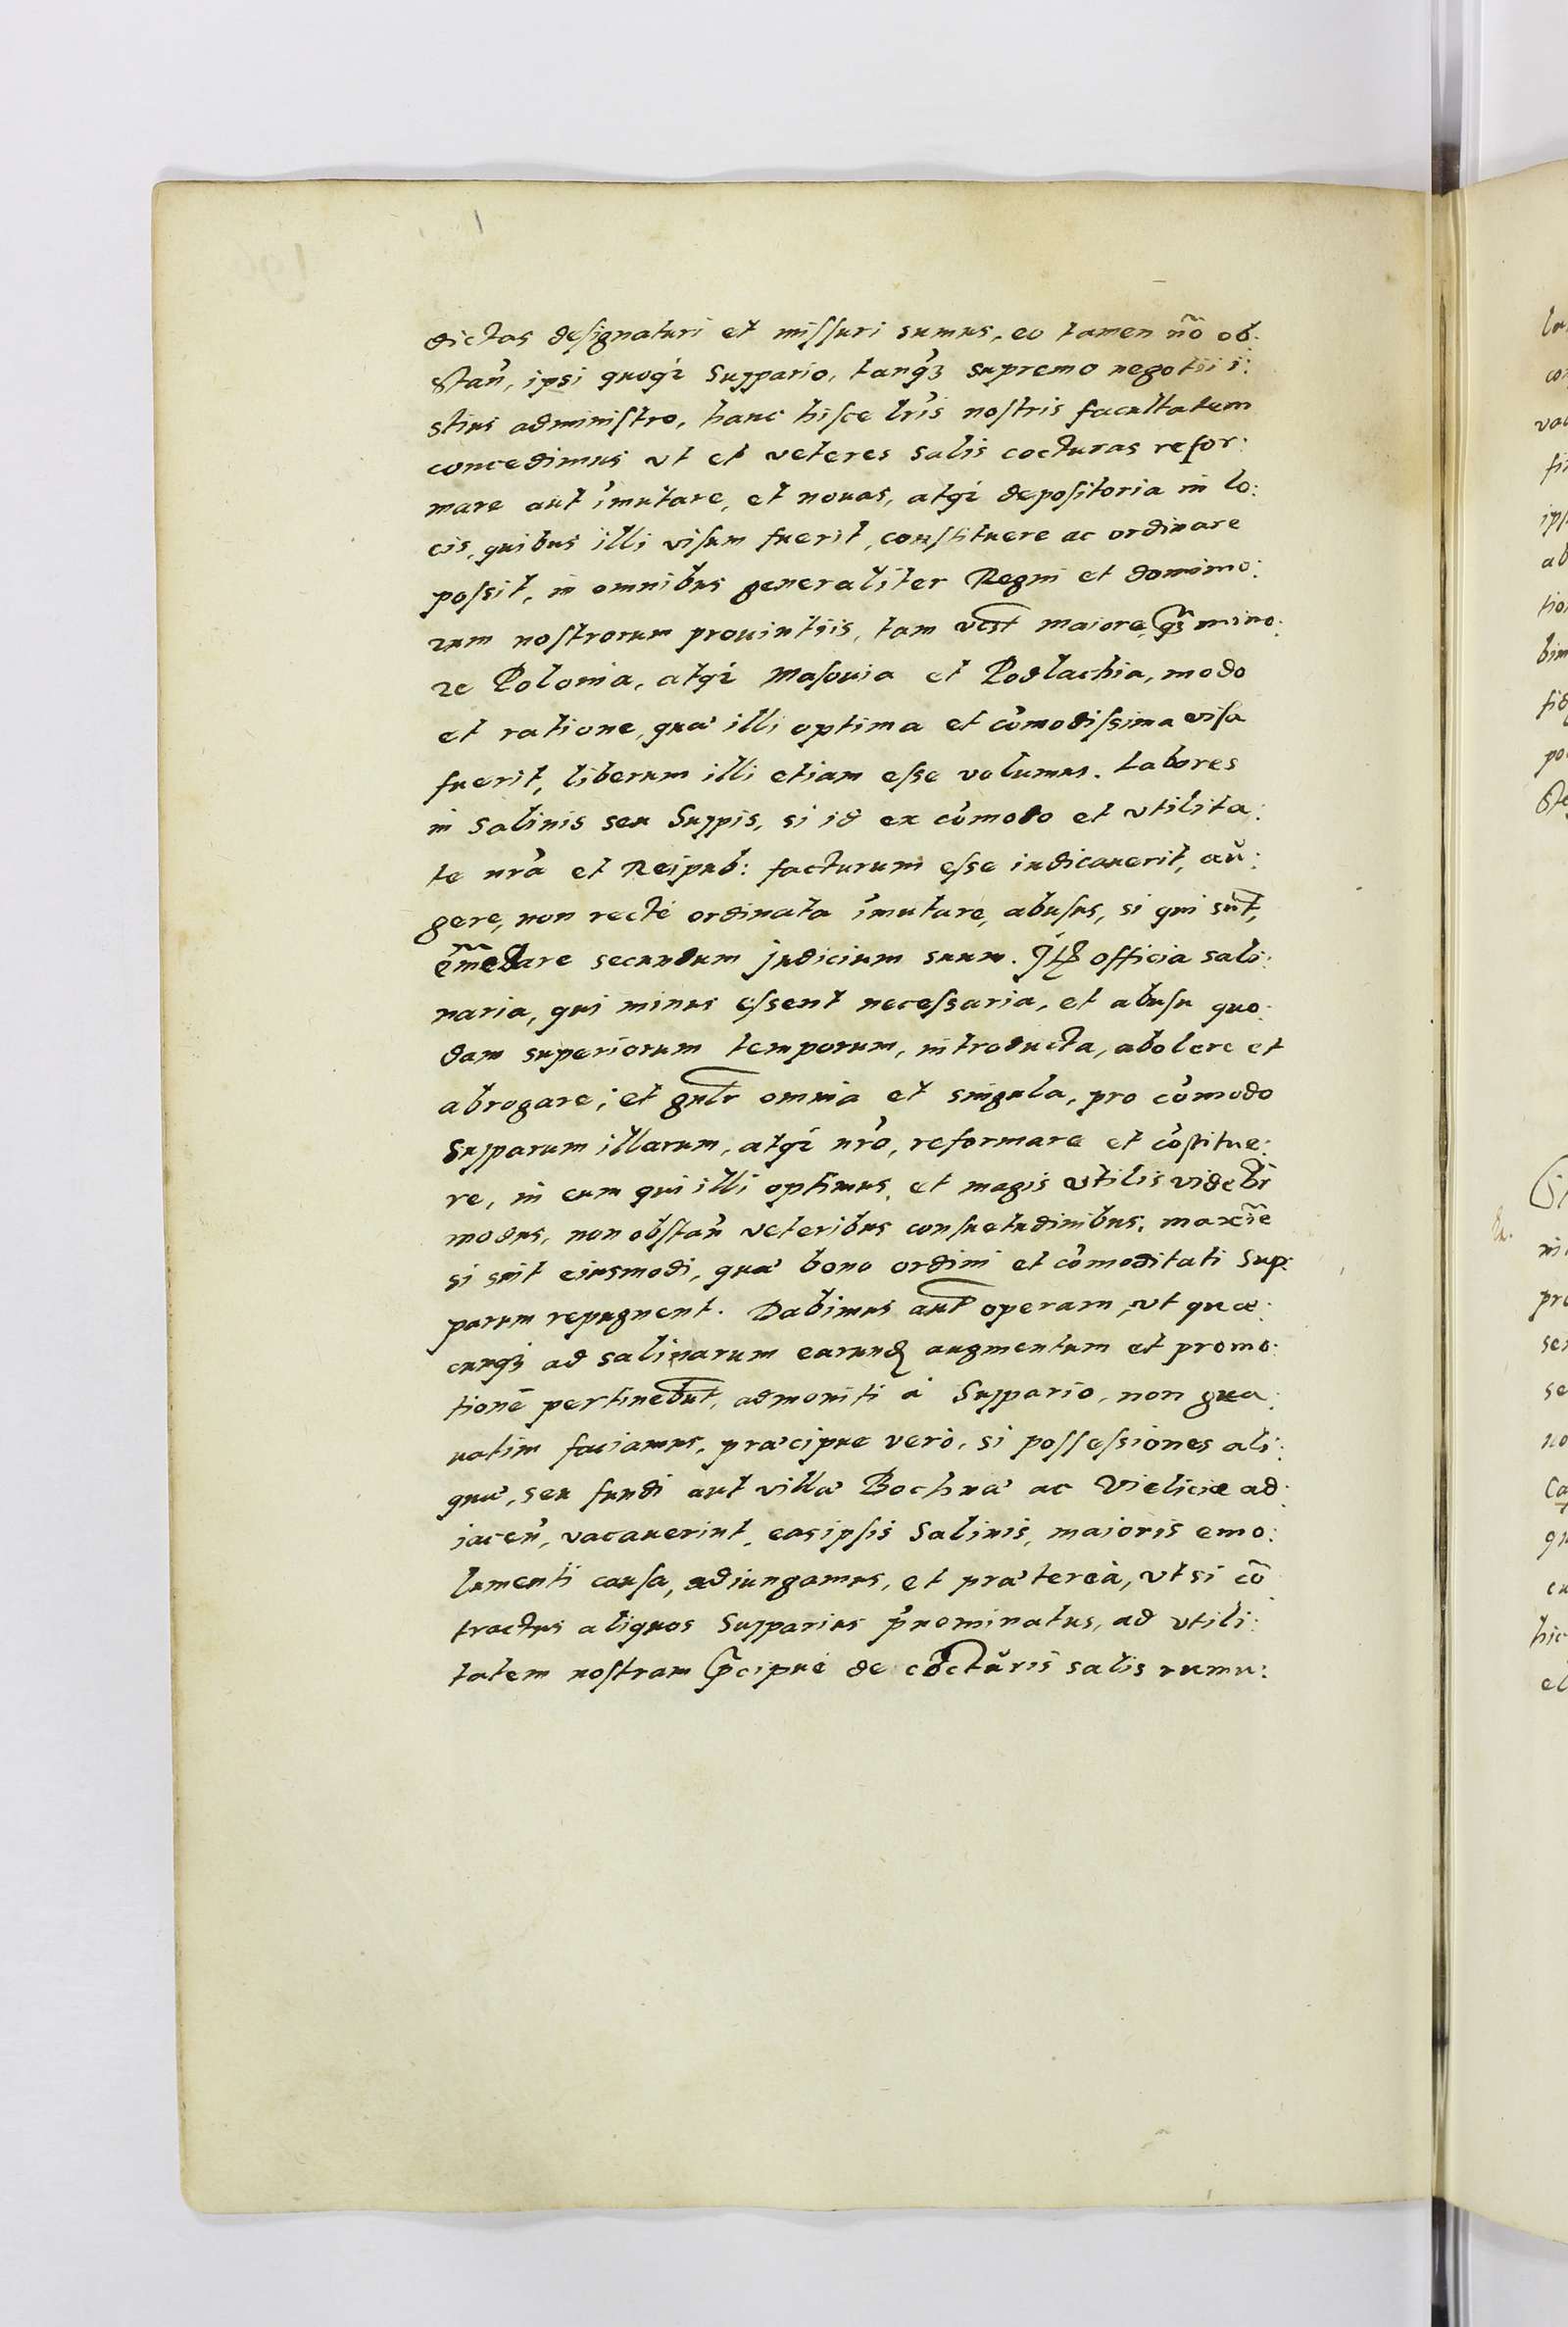 dictas deſignaturi et miſſuri sumus, eo tamen nõ ob:
stañ, ipsi quoq́ Suppario, tanq̃ʒ supremo negotii i:
stius adminiſtro, hanc hiſce lr̃is noſtris facultatem
concedimus vt et veteres salis cocturas refor:
mare aut im̃utare, et nouas, atq́ depoſitoria in lo:
cis, quibus illi viſum fuerit, conſtituere ac ordinare
poſsit, in omnibus generaliter Regni et domino:
rum noſtrorum prouintiis, tam vcʒt maiore, q̃ʒ mino:
re Polonia, atq́ Maſouia et Podlachia, modo
et ratione, quæ illi optima et com̃odiſsima viſa
fuerit, liberum illi etiam eſse volumus. Labores
in salinis seu Suppis, si id ex com̃odo et vtilita:
te nr̃a et Reipub: facturum eſse iudicauerit, au:
gere, non recté ordinata im̃utare, abuſus, si qui sũt,
em̃edare secundum judicium suum. Itẽ officia sali:
naria, qui minus eſsent neceſsaria, et abuſu quo:
dam superiorum temporum, introducta, abolere et
abrogare; et gnl̃r omnia et singula, pro com̃odo
Supparum illarum, atq́ nr̃o, reformare et cõſtitue:
re, in eum qui illi optimus, et magis vtilis videbr̃
modus, non obſtañ veteribus conſuetudinibus, maxie͂
si sint eiusmodi, quæ bono ordini et com̃oditati Sup:
parum repugnent. Dabimus aut̃ operam, vt quæ:
cunqʒ ad salinarum earund̃ augmentum et promo:
tionẽ pertinebũt, admoniti à Suppario, non gra:
uatim faciamus, præcipue verò, si poſſeſsiones ali:
quæ, seu fundi aut villæ Bochnæ ac Vieliciæ ad:
iaceñ, vacauerint, eas ipſis Salinis, maioris emo:
lumenti cauſa, adiungamus, et prætereà, vt si cõ
tractus aliquos Supparius p̃nominatus, ad vtili:
tatem noſtram p̃cipué de cocturis salis rumu: